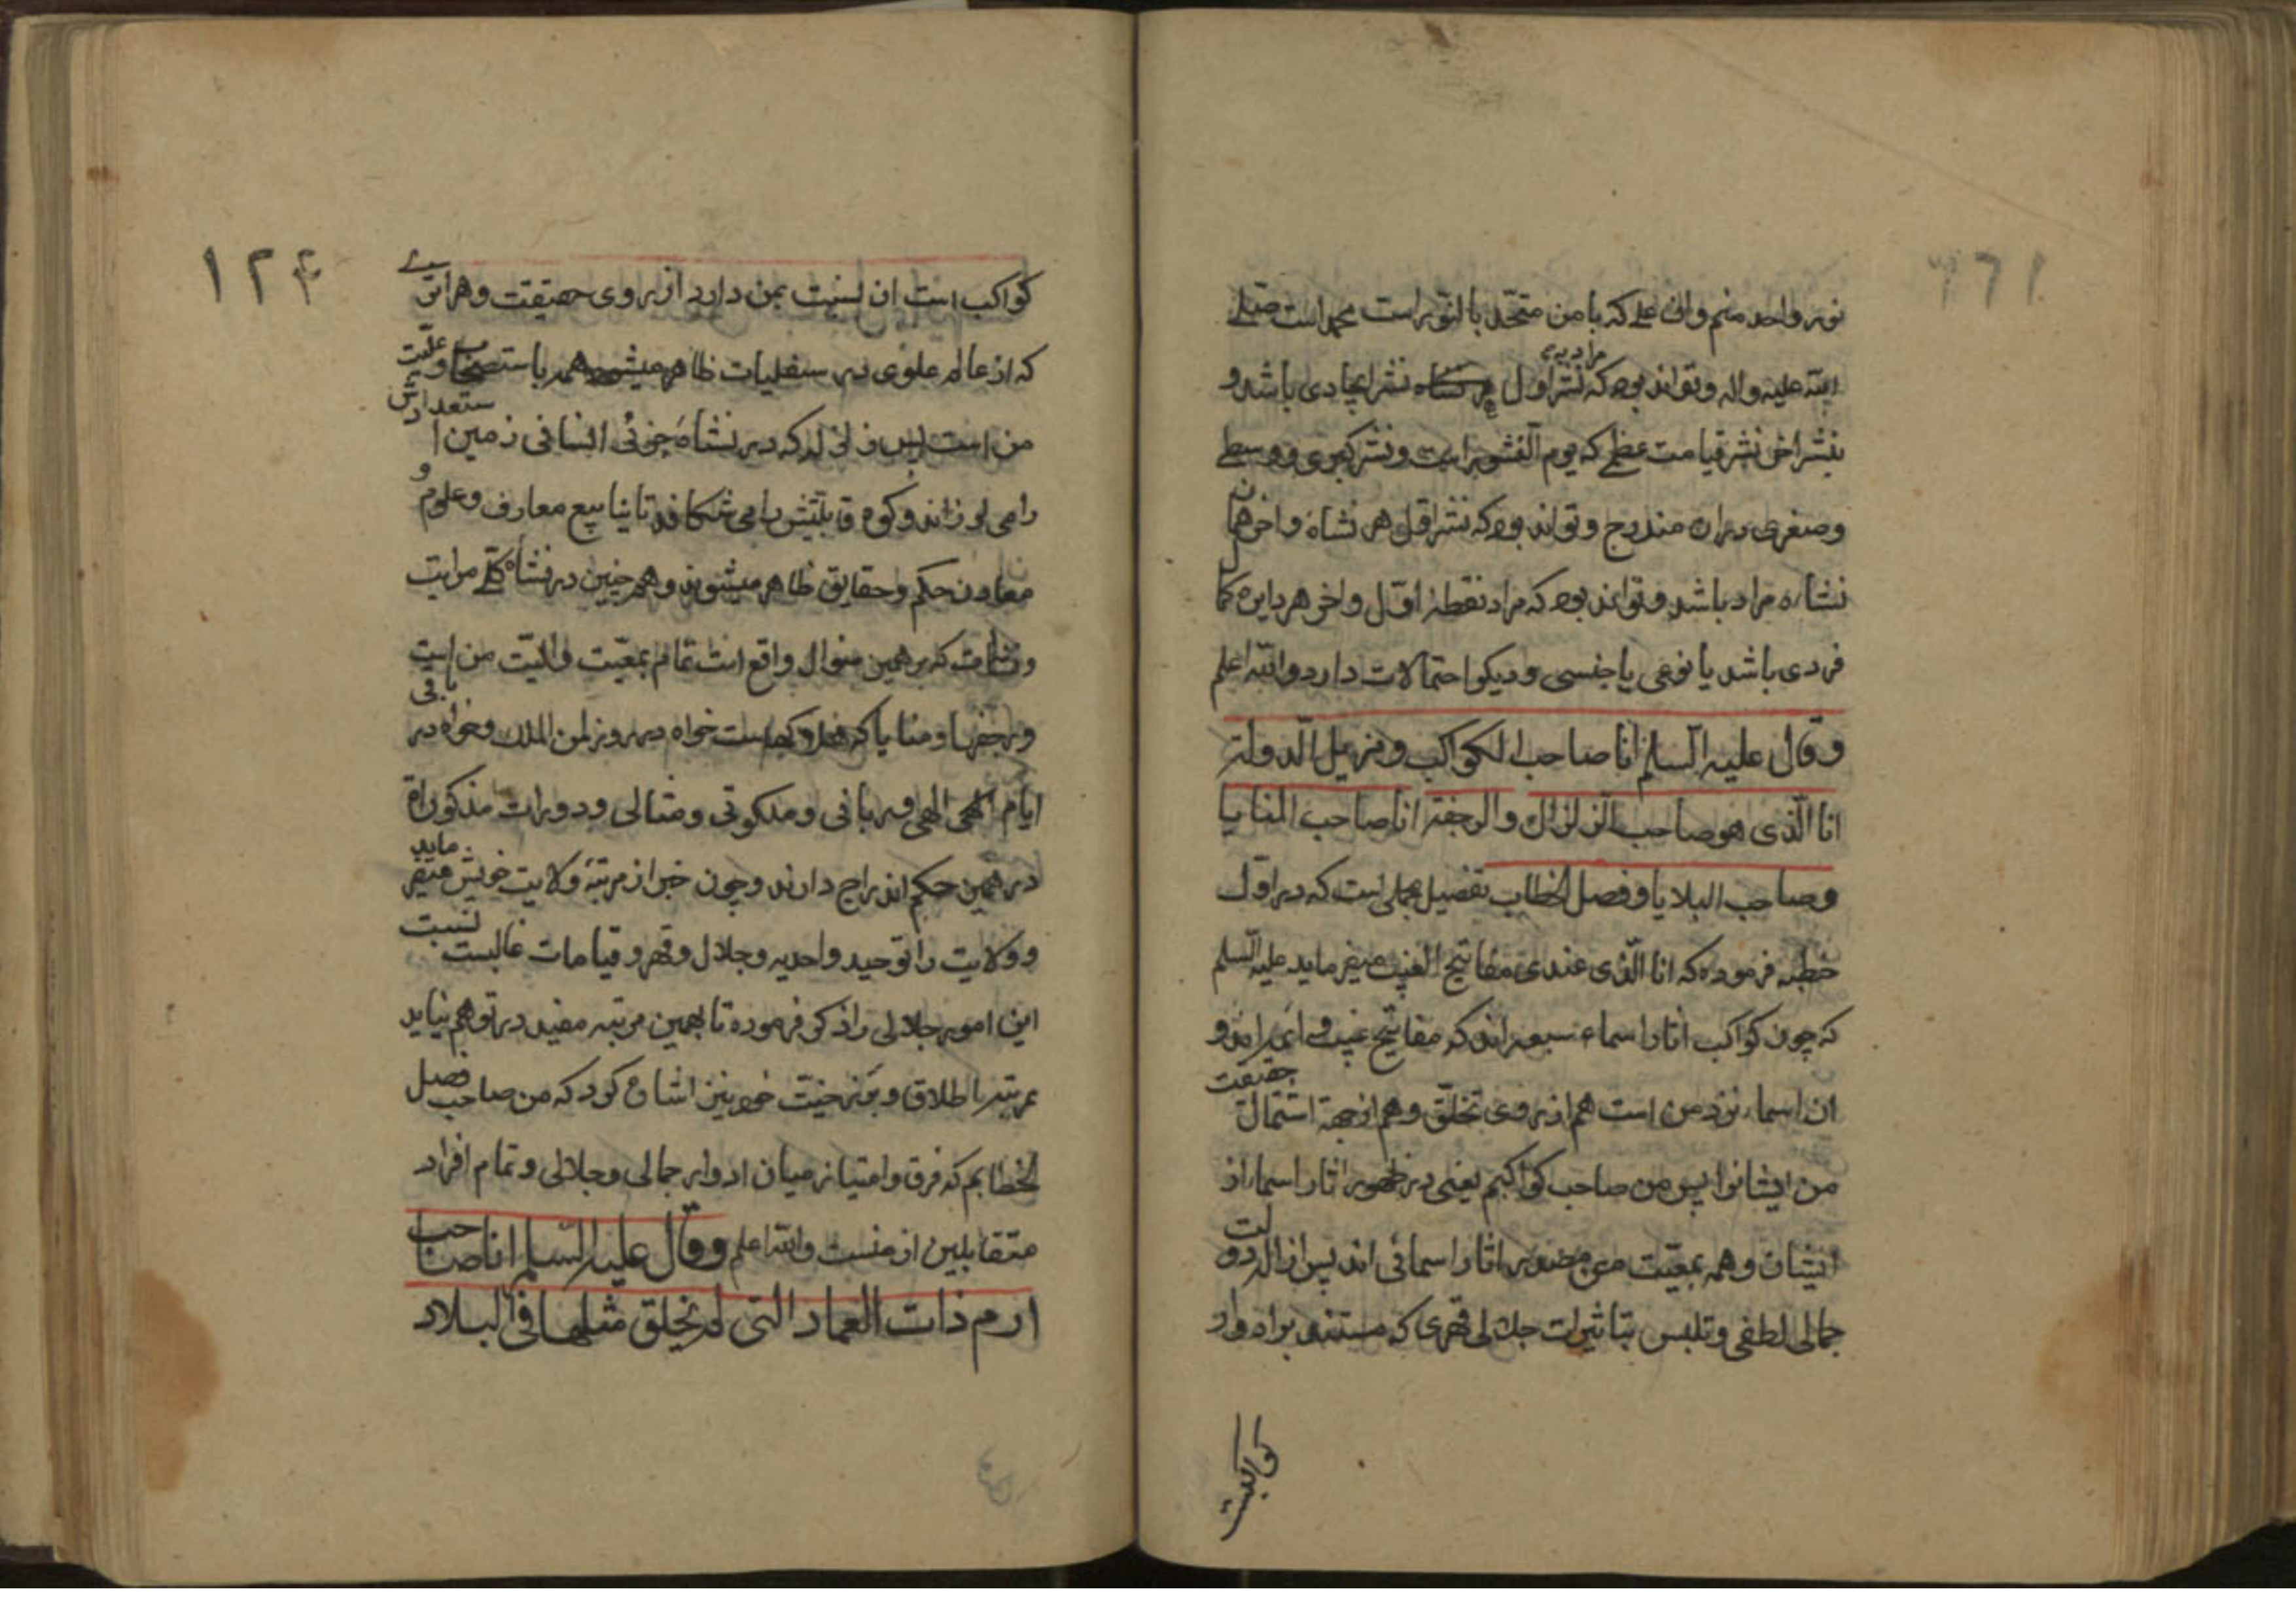 نور واحد منم وان علی که با من متحد بالنور است محمد است صلی
الله علیه واله وتواند بود که نشر اول مراد به نشر ایجادی باشد و
بنشر اخر نشر قیامت عظمی که یوم النشور است ونشر کبری ووسطی
وصغری دران مندرج وتواند بود که نشر اول هر نشاه واخر همان
نشاه مراد باشد وتواند بود که مراد نقطهٔ اول واخر هر دایره کمال
فردی باشد یا نوعی یا جنسی ودیکر احتمالات دارد والله اعلم
وقال علیه السلم انا صاحب الکواکب ومزیل الدولة
انا الذی هو صاحب الزلزال والرجفة انا صاحب المنایا
وصاحب البلایا وفصل الخطاب تفصیل مجملی است که در اول
خطبه فرموده که انا الذی عندی مفاتیح الغیب میفرماید علیه السلم
که چون کواکب اثار اسماء سبعه اند که مفاتیح غیب
ان اسماء نزد من است هم از روی تخلق وهم از جهة اشتمال حقیقت
من ایشانرا پس من صاحب کواکبم یعنی در ظهور اثار اسماء از
ایشان وهمه بمعیت من مصدر اثار اسمائی اند پس ازاله دولت
جمالی لطفی وتلبس بتاثیرات جلالی قهری که مستند براه وار
کواکبست
١٢٤
کواکب است ان نسبت بمن دارد از روی حقیقت وهر اثری
که از عالم علوی در سفلیات ظاهر میشود همه باستصحاب وعلیت
من است پس زلزله که در نشاهٔ جزئی انسانی زمین استعدادش
را می لرزاند وکوه قابلیتش را می شکافد تا ینابیع معارف وعلوم و
معادن حکم وحقایق ظاهر میشوند وهم چنین در نشاهٔ کلی مراتب
که بر همین منوال واقع است تمام بمعیت من است
ورجفها ومنایا که باقی خواه در روز لمن الملک وخواه در
ایام الهی وربانی وملکوتی ومثالی ودورات مذکوراة
در همین حکم اندراج دارند وچون خبر از مرتبهٔ ولایت خویش میفرماید
وولایت را توحید واحدیه وجلال وقهر وقیامات غالبست نسبت
این امور جلالی را ذکر فرموده تا بهمین مرتبه مقید در توهم نیاید
بمرتبه اطلاق وبرزخیت خود نیز اشاره کرد که من صاحب فصل
الخطابم که فرق وامتیاز میان ادوار جمالی وجلالی وتمام افراد
متقابلین از منست والله اعلم وقال علیه السلم انا صاحب
ارم ذات العماد التی لم یخلق مثلها فی البلاد